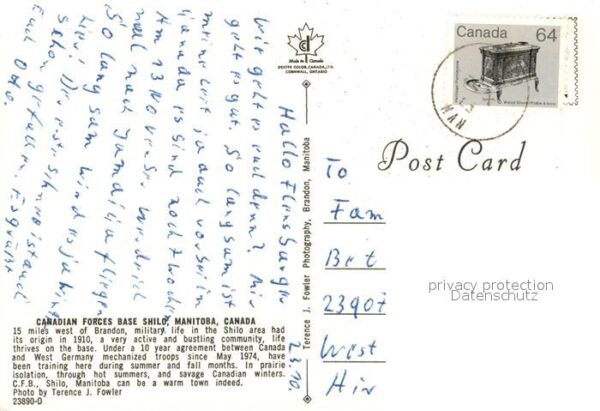 Hallo Flensburger
Wie geht es euch denn? Mir
geht es gut. So langsam ist
meine Zeit ja auch vorbei in
Canada es sind noch Wochen
Am 13 November werde ich
mal nach Jamaica fliegen
So langsam wird es ja hier
Euch Otto.
Made in Canada
DEXTER COLOR, CANADA, LTD.
CORNWALL, ONTARIO
Canada 64
MAN
Post Card
To
Fam
Bet
23907
West
Hir
privacy protection
Datenschutz
Terence J. Fowler Photography, Brandon, Manitoba
CANADIAN FORCES BASE SHILO, MANITOBA, CANADA
15 miles west of Brandon, military life in the Shilo area had
its origin in 1910, a very active and bustling community, life
thrives on the base. Under a 10 year agreement between Canada
and West Germany mechanized troops since May 1974, have
been training here during summer and fall months. In prairie
isolation, through hot summers, and savage Canadian winters.
C.F.B., Shilo, Manitoba can be a warm town indeed.
Photo by Terence J. Fowler
23890-D